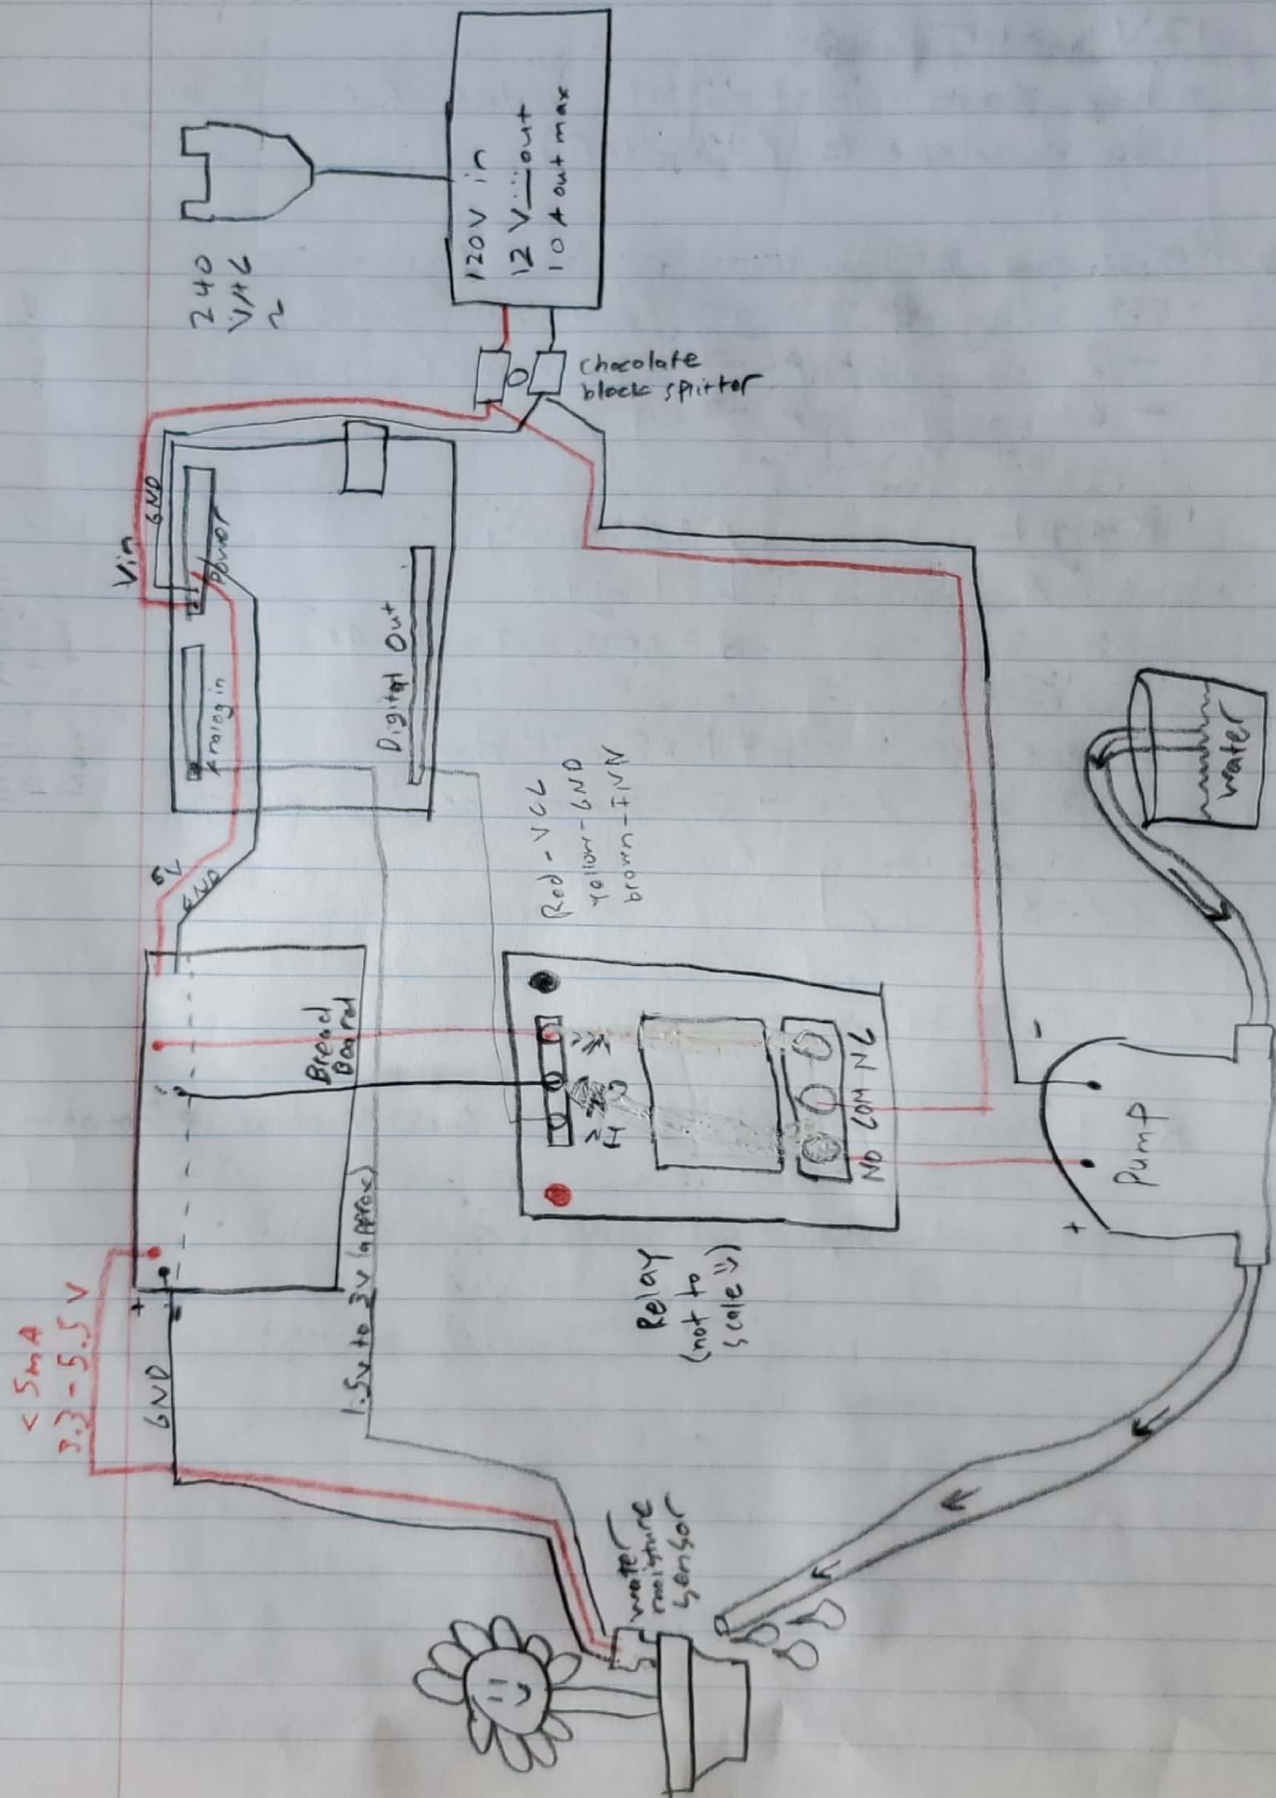 240
VAC
~
120V in
12V out
10A out max
chocolate
block splitter
Vin
GND
Power
Analog in
Digital Out
5V
GND
Red - VCC
Yellow - GND
brown - INN
Bread
Board
NC
COM
NO
Relay
(not to
scale =))
-
+
Pump
water
+
-
< 5mA
3.3 - 5.5 V
GND
1.5v to 3v (approx)
water
moisture
sensor